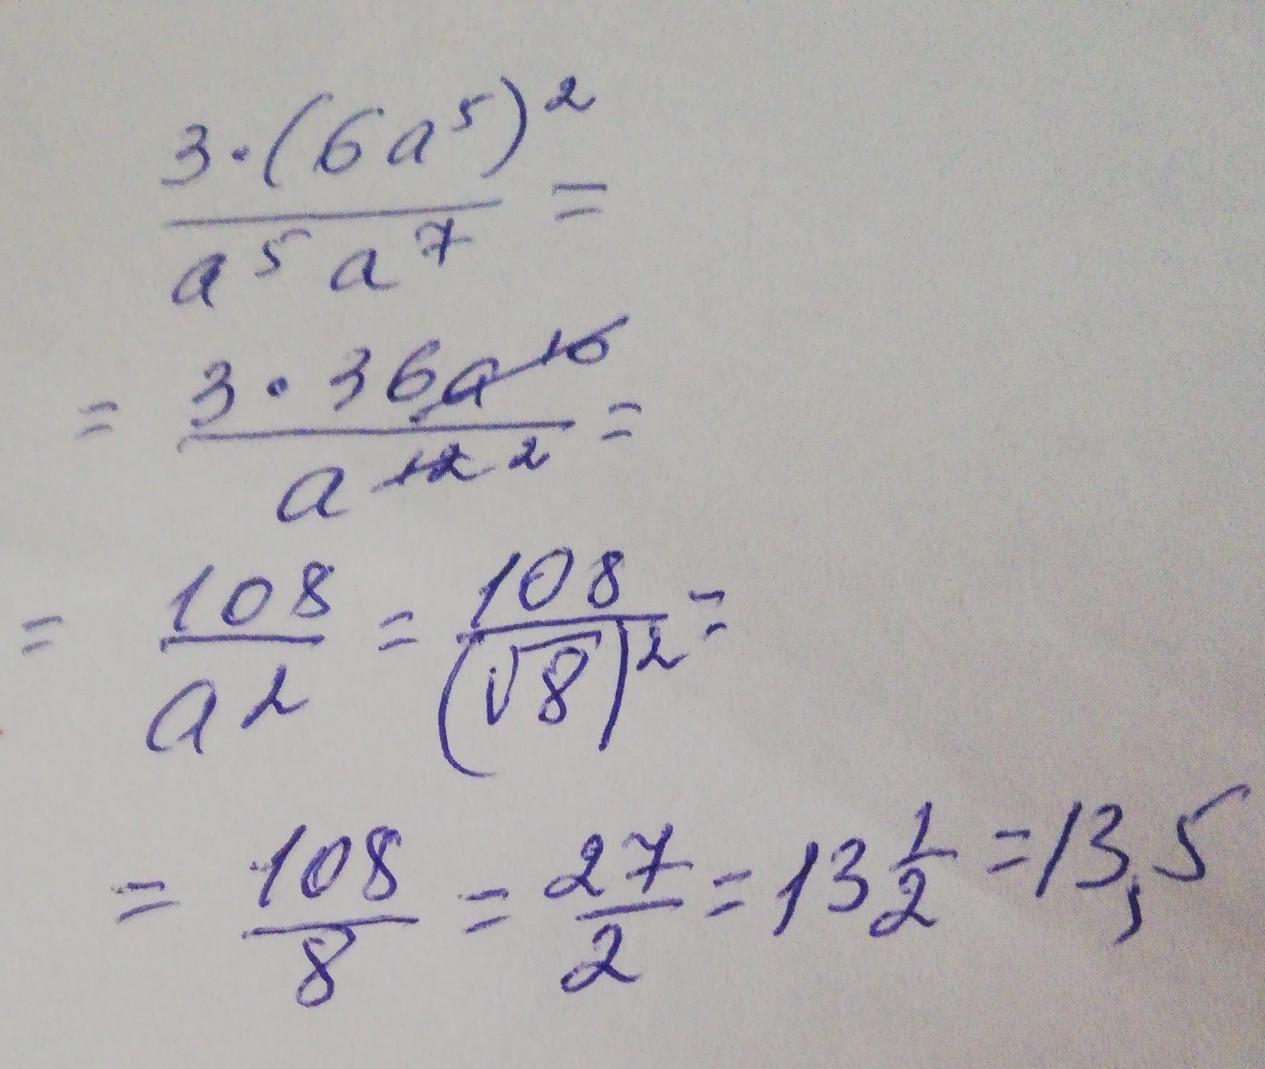 3·(6a⁵)²
a⁵a⁷ =
= 3·36a¹⁰
a¹² 2 =
= 108 = 108 =
a² (√8)²
= 108 = 27 = 13 1/2 = 13,5
8 2